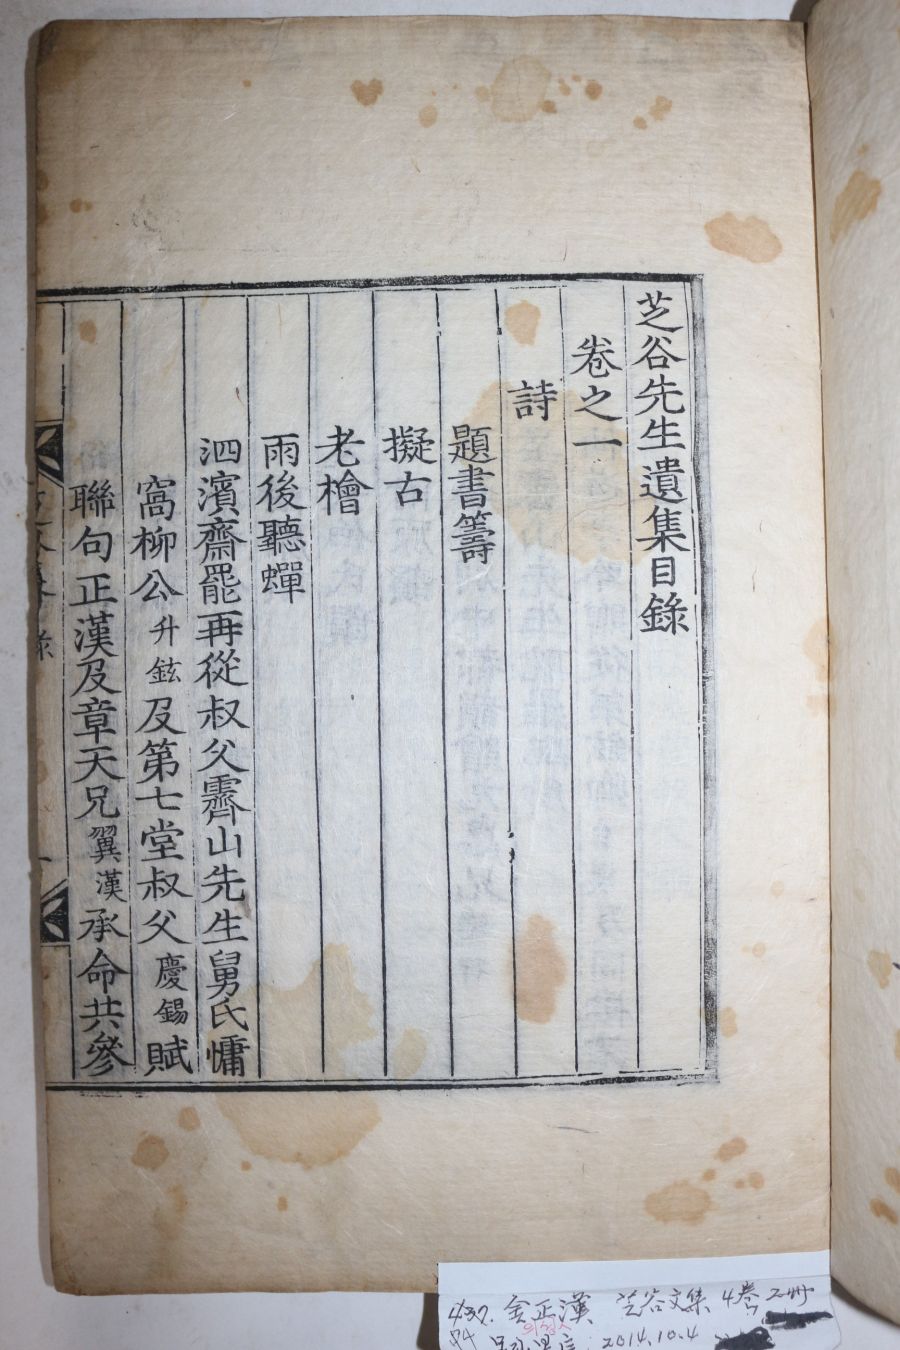 芝谷先生遺集目錄
卷之一
詩
題書籌
擬古
老檜
雨後聽蟬
泗濱齋罷再從叔父霽山先生舅氏慵
窩柳公升鉉及第七堂叔父慶錫賦
聯句正漢及章天兄翼漢承命共參
437. 金正漢 芝谷文集 4卷 2冊
2014.10.4